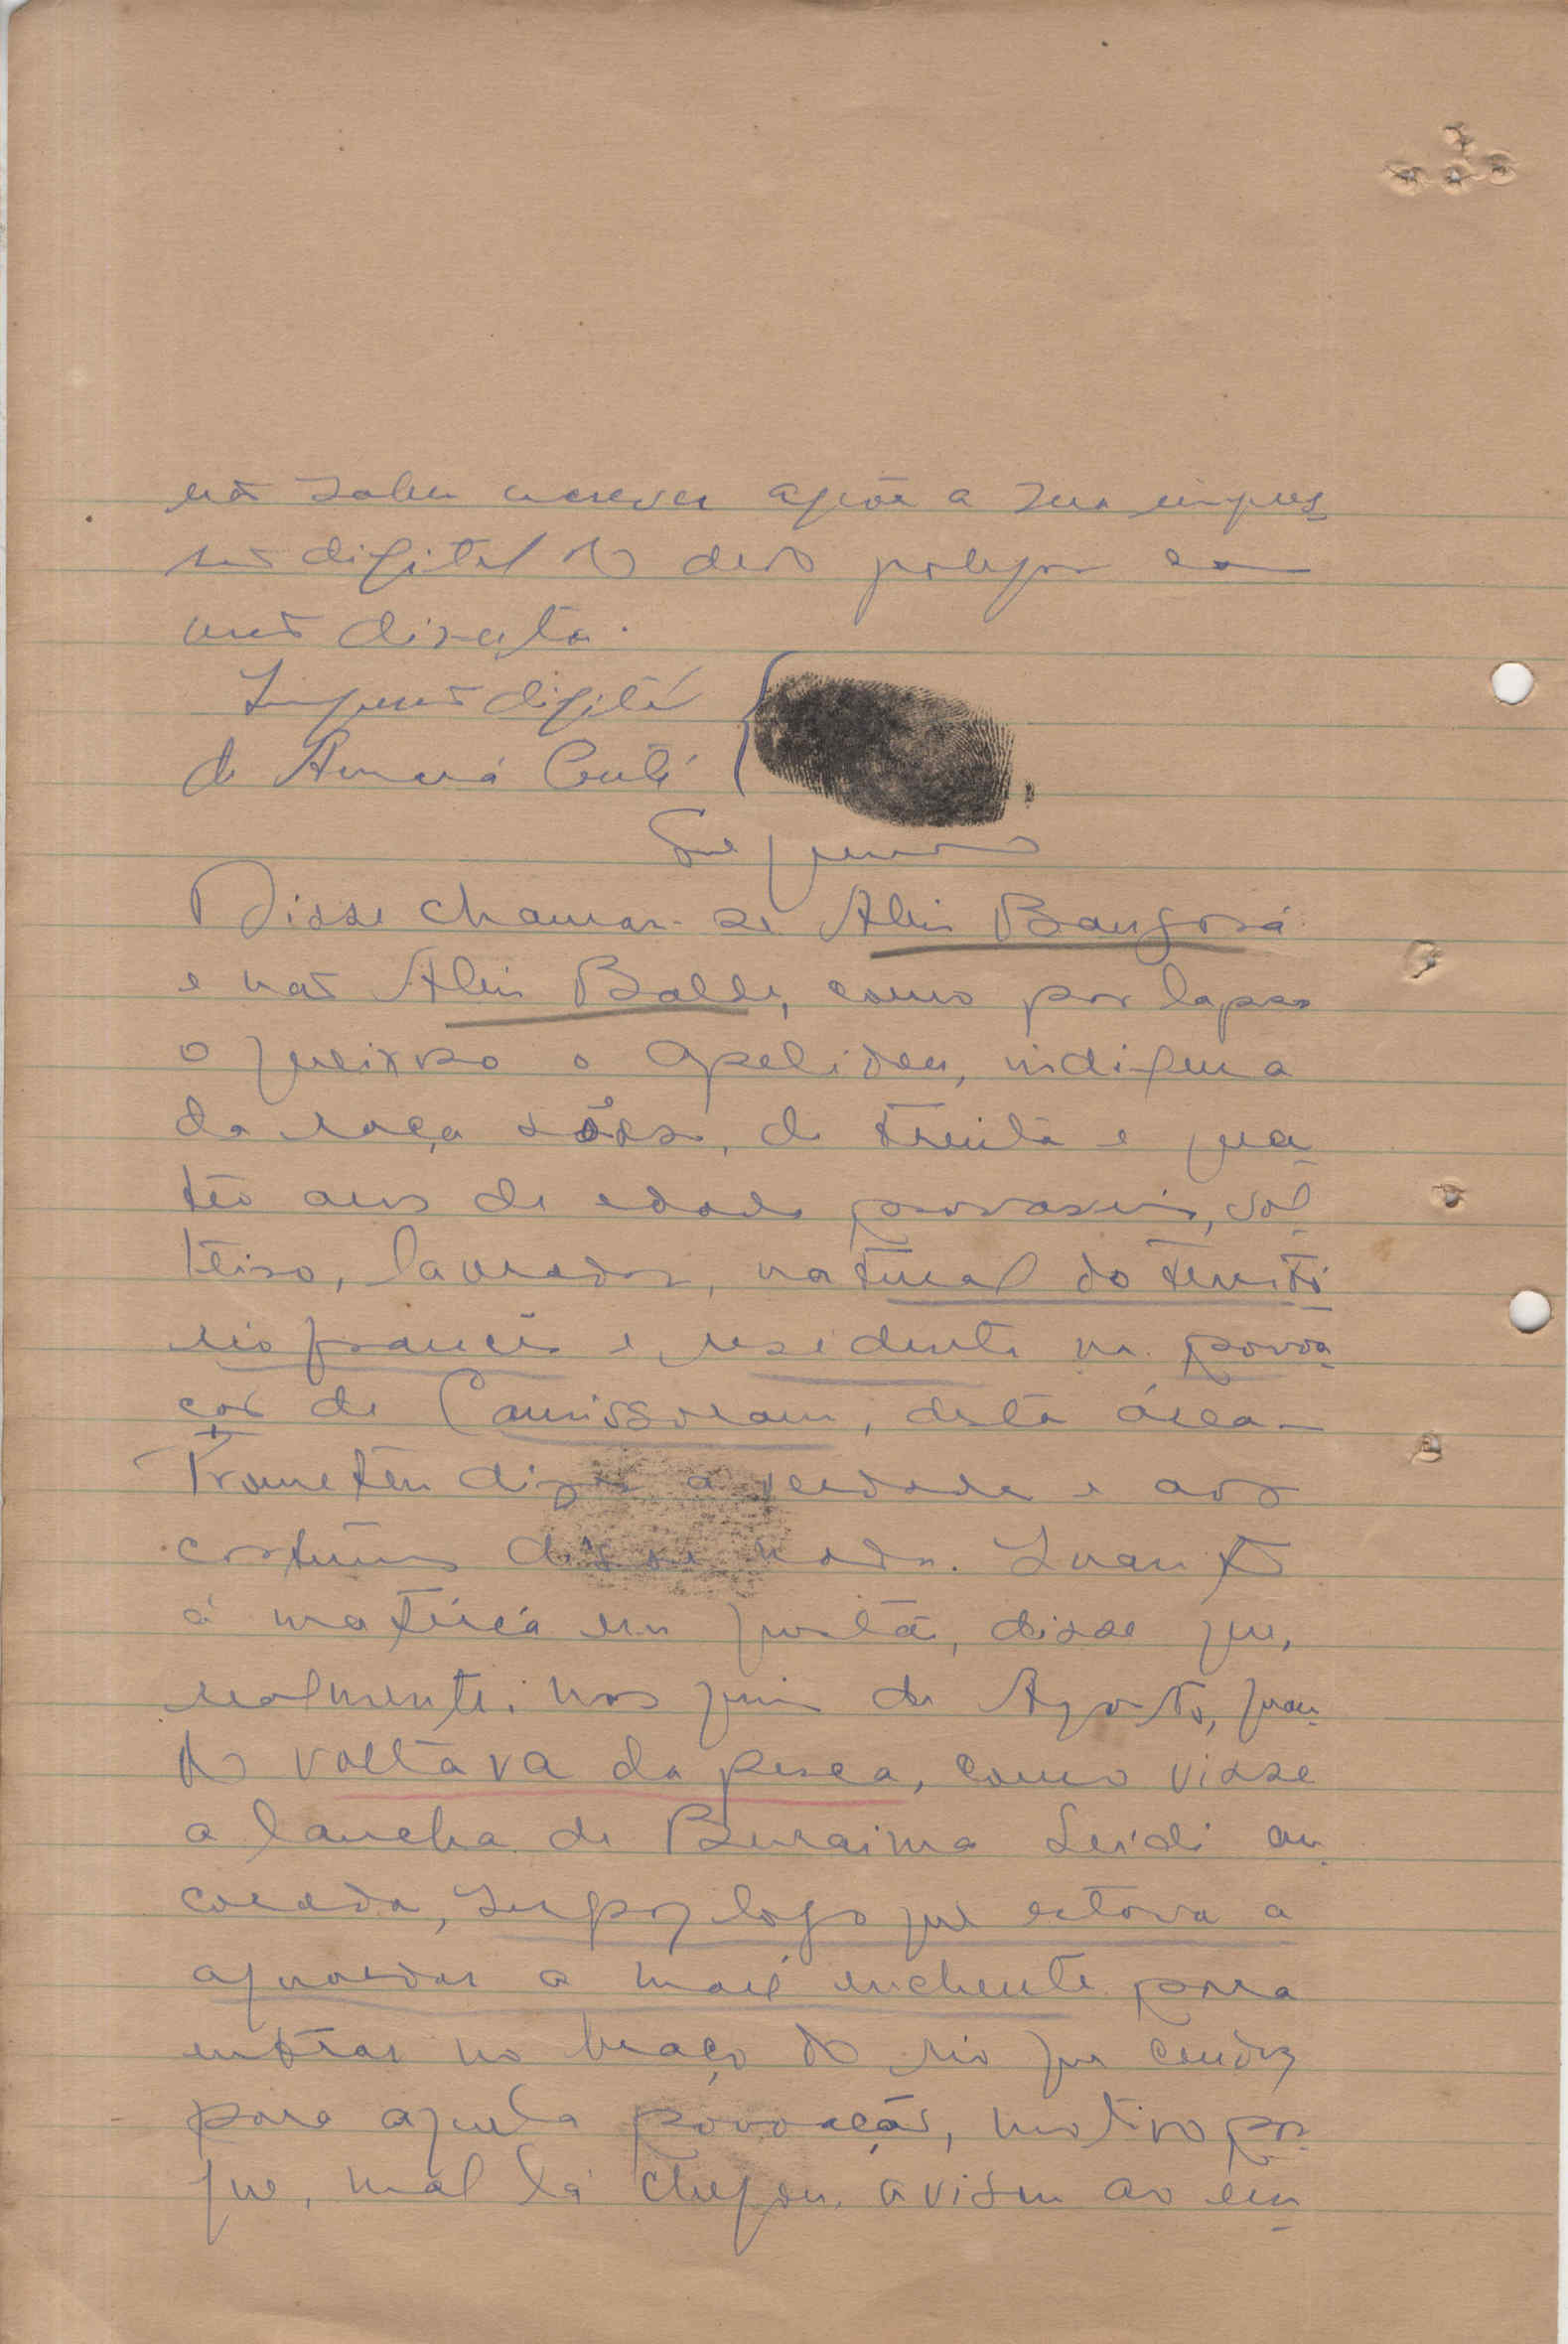 não saber escrever apôz a sua impres
são digital do dedo polegar da
mão direita.
Impressão digital
de Amará Conté
Segundo
Disse chamar-se Aliu Bangorá
e não Aliu Baldé, como por lapso
o queixoso o apelidou, indigena
da raça sôsso, de trinta e qua
tro anos de edade provaveis, sol
teiro, lavrador, natural do territó
rio francês e residente na povoa
ção de Camissoram, desta área.
Prometeu dizer a verdade e aos
costumes disse nada. Quanto
á matéria em questão, disse que,
realmente, nos fins de Agosto, quan
do voltava da pesca, como visse
a lancha de Buraima Seidi an
corada, supoz logo que estava a
aguardar a maré enchente para
entrar no braço do rio que conduz
para aquela povoação, motivo por
que, mal lá chegou, avisou ao em